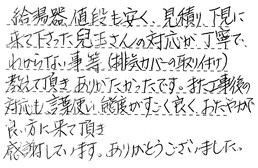 給湯器、値段も安く、見積り、下見に
来て下さった児玉さんの対応が、丁寧で、
わからない事等、(排気カバーの取り付け)
教えて頂き、ありがたかったです。また工事後の
対応も言葉使い、態度がすごく良く、おだやかで
良い方に来て頂き
感謝しています。ありがとうございました。